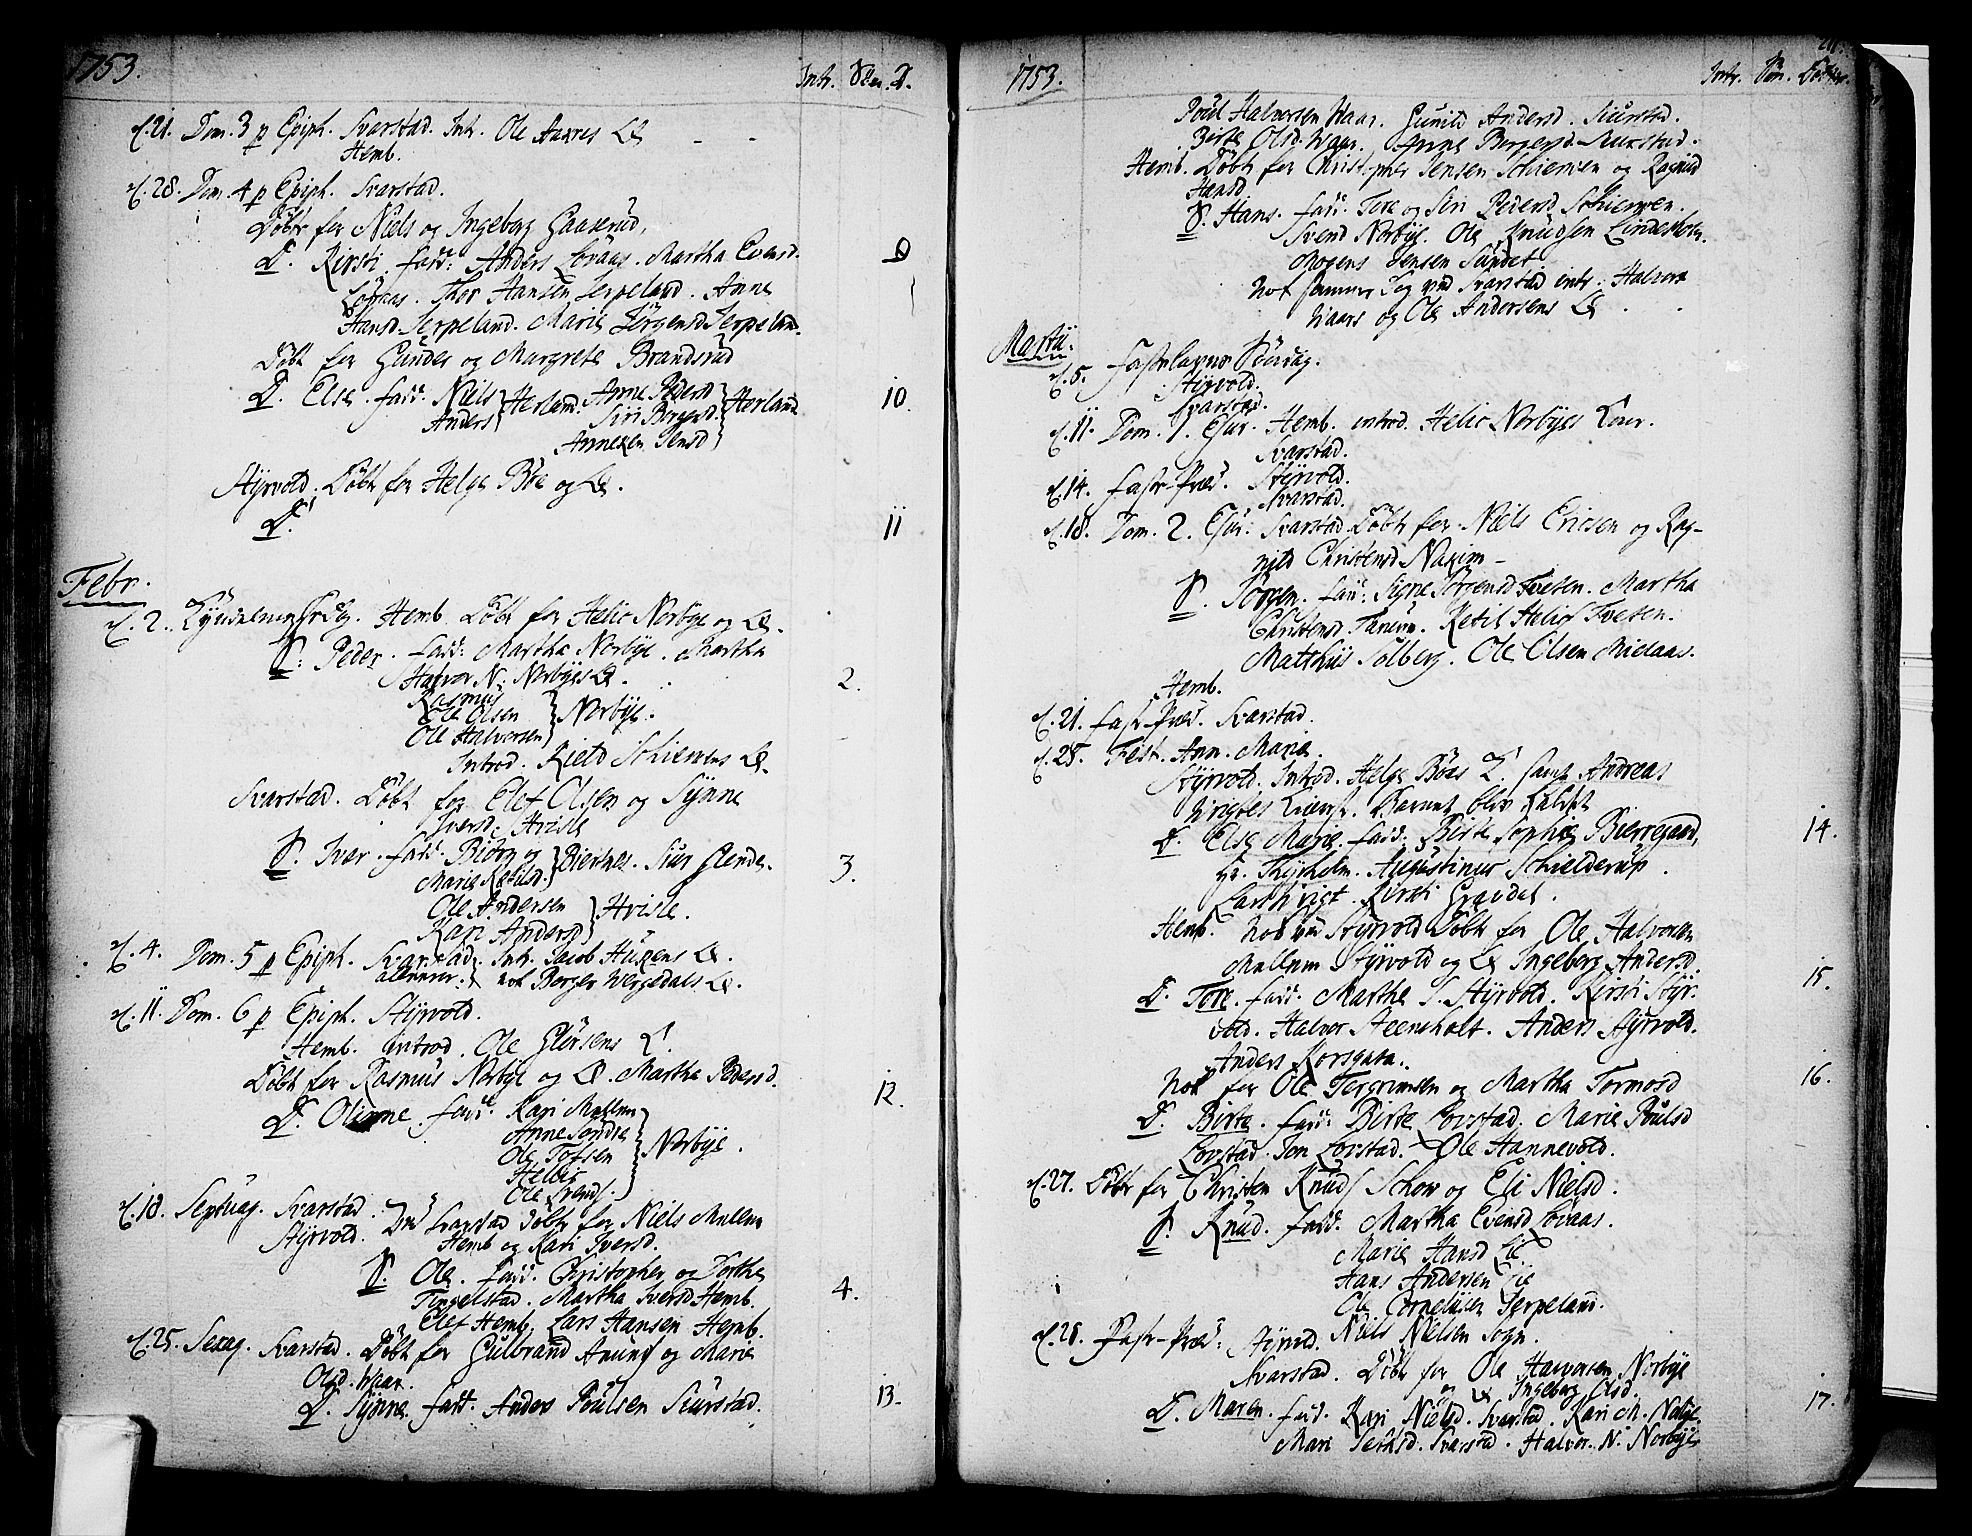 1753.
Intr. Sön. D.
d. 21. Dom. 3 p Epiph. Svarstad. Intr. Ole Aaxres
Hemb.
d. 28. Dom. 4 p Epiph. Svarstad.
Döbt for Niels og Ingeborg Gaaserud,
D. Kirsti. fadd: Anders Lövaas. Martha Evensd. 9
Lövaas. Thor Hansen Serpeland. Anne
Hansd Serpeland. Marie Jörgensd Serpeland.
Döbt for Gunder og Margrete Brandsrud
D. Else. fadd. Niels Herland. Anne Pedersd Herland 10.
Anders Siri Borgersd.
Anneken Jensd
Styrvold. Döbt for Helge Böe og
D. 11
Febr.
d. 2. Kyndelmissdg. Hemb. Döbt for Helie Norbye og
S. Peder. fadd: Martha Norbye. Martha
Halvor N: Norbyes 2.
Rasmus
Ole Olsen Norbye.
Ole Halversen
Introd. Kield Schiemens
Svarstad. Döbt for Elef Olsen og Synne
Iversd. Hvisle
S. Iver. fadd. Biörn og
Marie Ketilsd. Biernes. Siur Glende. 3.
Ole Andersen Hvisle.
Kari Andersd
d. 4. Dom. 5 p Epiph. Svarstad. Intr. Jacob
nok Borger Wegedals
d. 11. Dom. 6 p Epiph. Styrvold.
Hemb. introd. Ole Glörsens
Döbt for Rasmus Norbye og Martha Pedersd. 12.
D. Olinne. fadd. Kari Mellem
Anne Söndre
Ole Tofsen Norbye.
Hellie
Ole Svends.
d. 18. Septuag. Svarstad. Ved Svarstad döbt for Niels Mellem
Styrvold. Hemb og Kari Iversd.
S. Ole. fadd. Christopher og Dorthe
Tingelstad. Martha Iversd Hemb. 4.
Elef Hemb. Lars Hansen Hemb.
d. 25. Sexag. Svarstad. Döbt for Gulbrand Amuns og Marie
Olsd. Waar.
D. Synne. fadd. Anders Poulsen Siurstad. 13.
1753.
Intr. Sön. Dötre.
Poul Halversen Waar. Gunild Andersd. Siurstad.
Birte Olsd. Waar. Anne Borgersd.
Hemb. Döbt for Christopher Jensen Schiemen og Ragnild
Hansd
S. Hans. fadd. Tore og Siri Pedersd Schiemen.
Svend Norbye. Ole Knudsen Lindesholm.
Mogens Jensen Sundet
Nok samme Dag ved Svarstad intr: Halvors
Waars og Ole Andersens
Martii.
d. 5. Fastelavns Söndag.
Styrvold.
Svarstad.
d. 11. Dom. 1. Qvr. Hemb. introd. Helie Norbyes
Svarstad.
d. 14. Fast-Præd. Styrvold.
Svarstad.
d. 18. Dom. 2. Qvr: Svarstad Döbt for Niels Ericsen og Rag-
nild Christensd Naxim -
S. Jörgen. fadd: Signe Jörgensd Tvesen. Martha
Christensd Ketil Helies Tvesen.
Matthiis Solberg. Ole Olsen Mielaas.
Hemb.
d. 21. Fast-Præd. Svarstad.
d. 25. Fest. Ann. Mariæ.
Styrvold. Introd. Helge Böes samt Andreas
Wrigtes Barnet blev kaldet
D. Else Marie. fadd: Birte Sophie Bierregaard, 14.
Hr. Thyrholm. Augustinus Schielderup.
Kirsti Gravdal.
Hemb. Nok ved Styrvold Döbt for Ole Halvorsen
Mellem Styrvold og Ingeborg Andersd.
D. Tore. fadd. Marthe S. Styrvold. Kirsti Styr- 15.
vold. Halvor Steensholt. Anders Styrvold.
Anders Korsgaar.
Nok for Ole Tergrimsen og Martha Tormosd 16.
D. Birte. fadd: Birte Lovstad. Marie Poulsd
Lovstad. Jon Lovstad. Ole Hannevold.
d. 27. Döbt for Christen Knuds Schow og Eli Nielsd.
S. Knud. fadd. Martha Evensd Lövaas.
Marie Hansd Lie
Hans Andersen Lie
Ole Corneliisen Serpeland.
d. 28. Fast-Præd: Styrvold. Niels Nielsen Sogn.
Svarstad. Döbt for Ole Halvorsen Norbye
og Ingeborg Olsd.
D. Maren. fadd. Kari Nielsd. Svarstad. Kari M. Norbye. 17.
Mari Svarstad. Halvor. N. Norbye